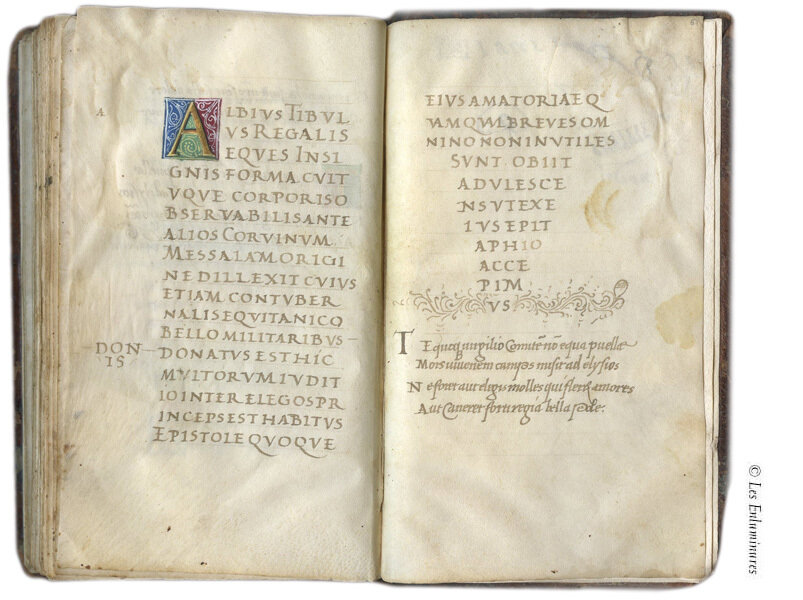 A
ALBIVS TIBVL
VS REGALIS
EQVES INSI
GNIS FORMA CVLT
VQVE CORPORISO
BSERVABILISANTE
ALIOS CORVINVM
MESSALAM ORIGI
NE DILLEXIT CVIVS
ETIAM CONTVBER
NALIS EQVITANICO
BELLO MILITARIBVS
DONIS
DONATVS EST HIC
MVLTORVM IVDIT
IO INTER ELEGOS PR
INCEPS EST HABITVS
EPISTOLE QVOQVE
EIVS AMATORIAE Q
VAMQVI BREVES OM
NINO NON INVTILES
SVNT OBIIT
ADVLESCE
NS VT EXE
IVS EPIT
APHIO
ACCE
PIM
VS
Te quoq virgilio Comitē nō equa puella
Mors iuuenem campos misit ad elysios
Ne foret aut elegis molles qui fleret amores
Aut Caneret forti regia bella pede:
© Les Enluminures